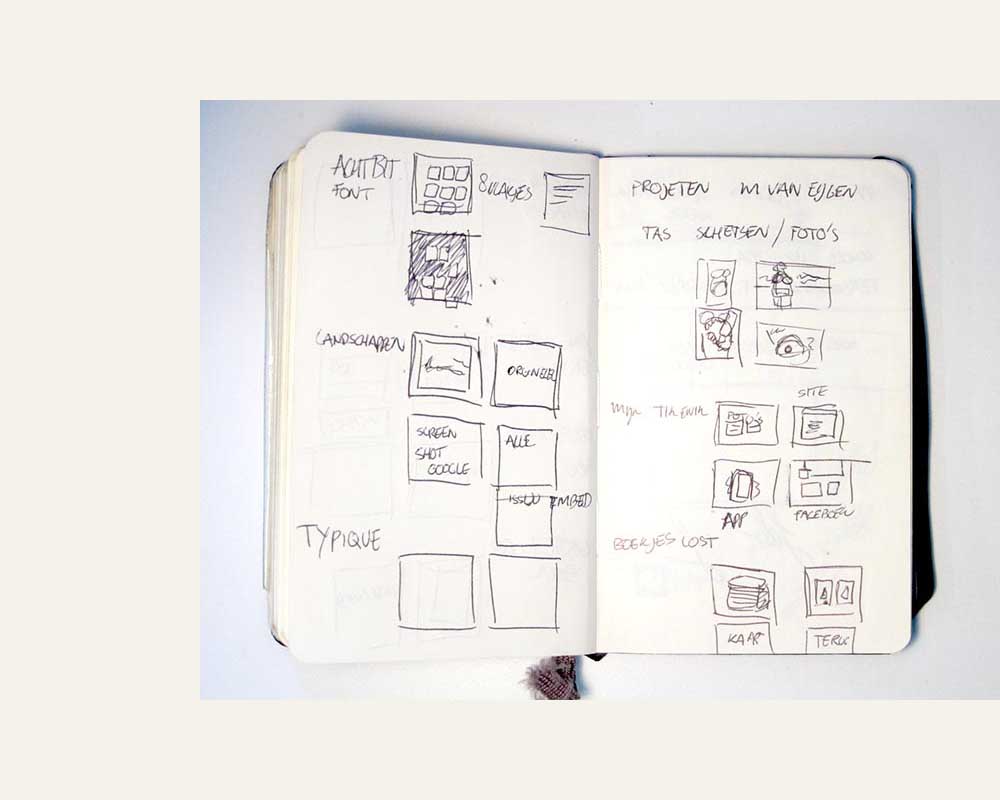 ACHTBIT
FONT
8 VLAKJES
LANDSCHAPPEN
SCREEN
SHOT
GOOGLE
ALLE
ISSUU EMBED
TYPIQUE
PROJETEN M VAN EIJGEN
TAS SCHETSEN / FOTO'S
SITE
Mijn
FOTO'S
APP
FACEBOEK
BOEKJES LOST
KAART
TERUG